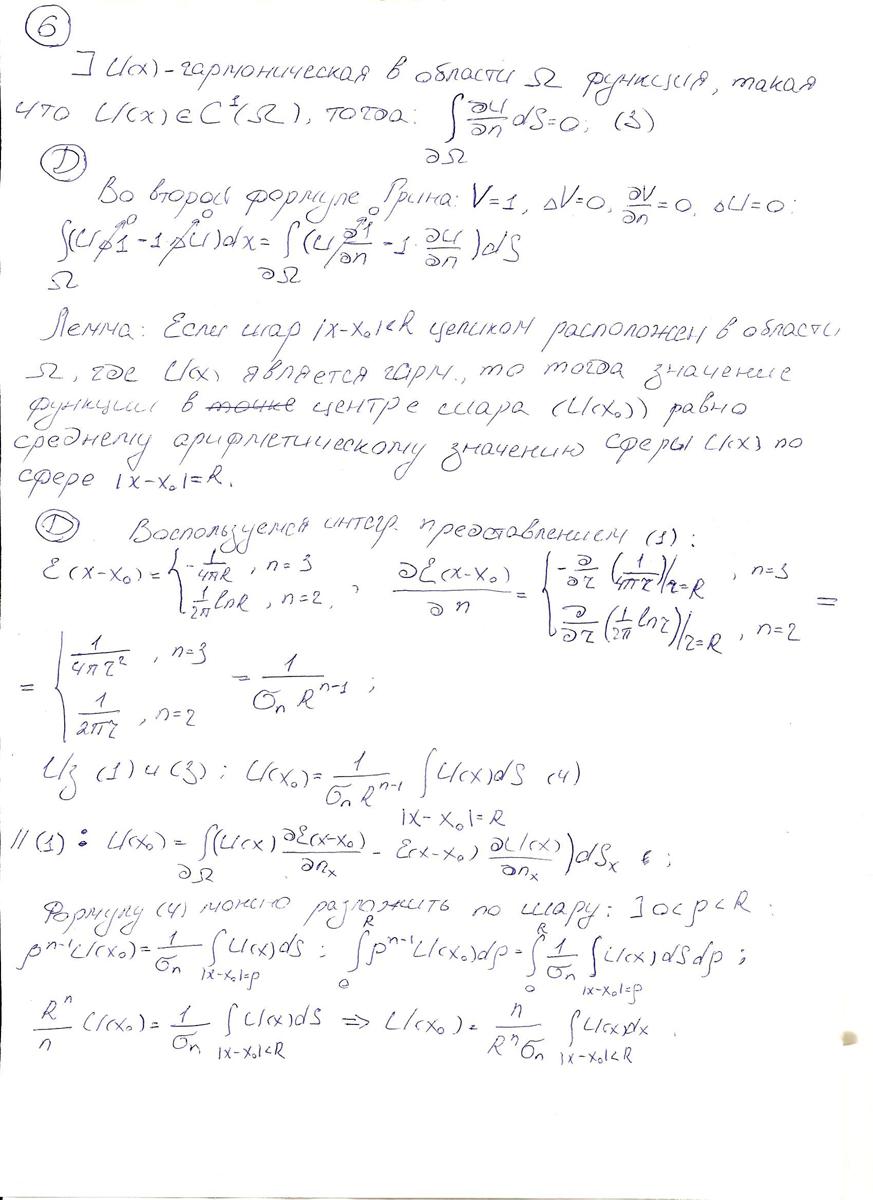 6
] U(x) - гармоническая в области Ω функция, такая
что U(x) ∈ C¹(Ω), тогда: ∫_{∂Ω} ∂U/∂n dS = 0; (3)
Д
Во второй формуле Грина: V=1, ΔV=0, ∂V/∂n=0, ΔU=0:
∫_Ω (U Δ1 - 1·ΔU)dx = ∫_{∂Ω} (U ∂1/∂n - 1·∂U/∂n)dS
Лемма: Если шар |x-x₀|<R целиком расположен в области
Ω, где U(x) является гарм., то тогда значение
функции в точке центре шара (U(x₀)) равно
среднему арифметическому значению сферы U(x) по
сфере |x-x₀|=R.
Д Воспользуемся интегр. представлением (1):
Ɛ(x-x₀) = { -1/(4πR), n=3; 1/(2π) lnR, n=2, ; ∂Ɛ(x-x₀)/∂n = { -∂/∂r (1/(4πr))|_{r=R}, n=3; ∂/∂r (1/(2π) ln r)|_{r=R}, n=2 =
= { 1/(4πr²), n=3; 1/(2πr), n=2 = 1/(σₙ R^{n-1});
Из (1) и (3): U(x₀) = 1/(σₙ R^{n-1}) ∫_{|x-x₀|=R} U(x)dS (4)
// (1): U(x₀) = ∫_{∂Ω} (U(x) ∂Ɛ(x-x₀)/∂n_x - Ɛ(x-x₀) ∂U(x)/∂n_x)dS_x ;
Формулу (4) можно разложить по шару: ] 0<ρ<R:
ρ^{n-1}U(x₀) = 1/σₙ ∫_{|x-x₀|=ρ} U(x)dS; ∫₀^R ρ^{n-1}U(x₀)dρ = ∫₀^R 1/σₙ ∫_{|x-x₀|=ρ} U(x)dSdρ;
R^n/n U(x₀) = 1/σₙ ∫_{|x-x₀|<R} U(x)dS => U(x₀) = n/(R^n σₙ) ∫_{|x-x₀|<R} U(x)dx.